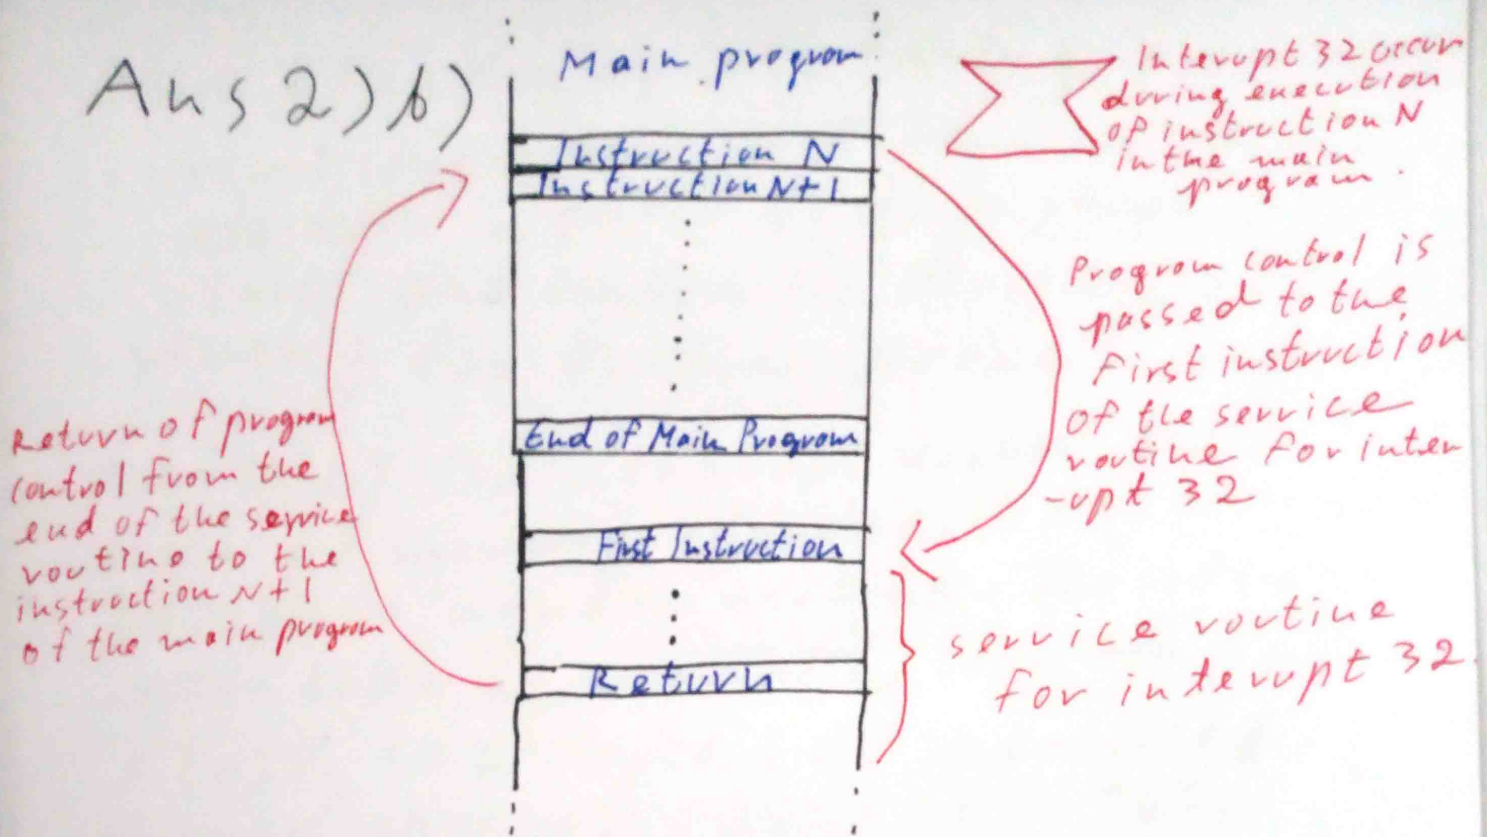 Ans 2) b)
Main program
Instruction N
Instruction N+1
End of Main Program
First Instruction
Return
Interupt 32 occur
during execution
of instruction N
in the main
program.
Program control is
passed to the
First instruction
of the service
routine for inter
-upt 32
service routine
for interupt 32
Return of program
control from the
end of the service
routine to the
instruction N+1
of the main program